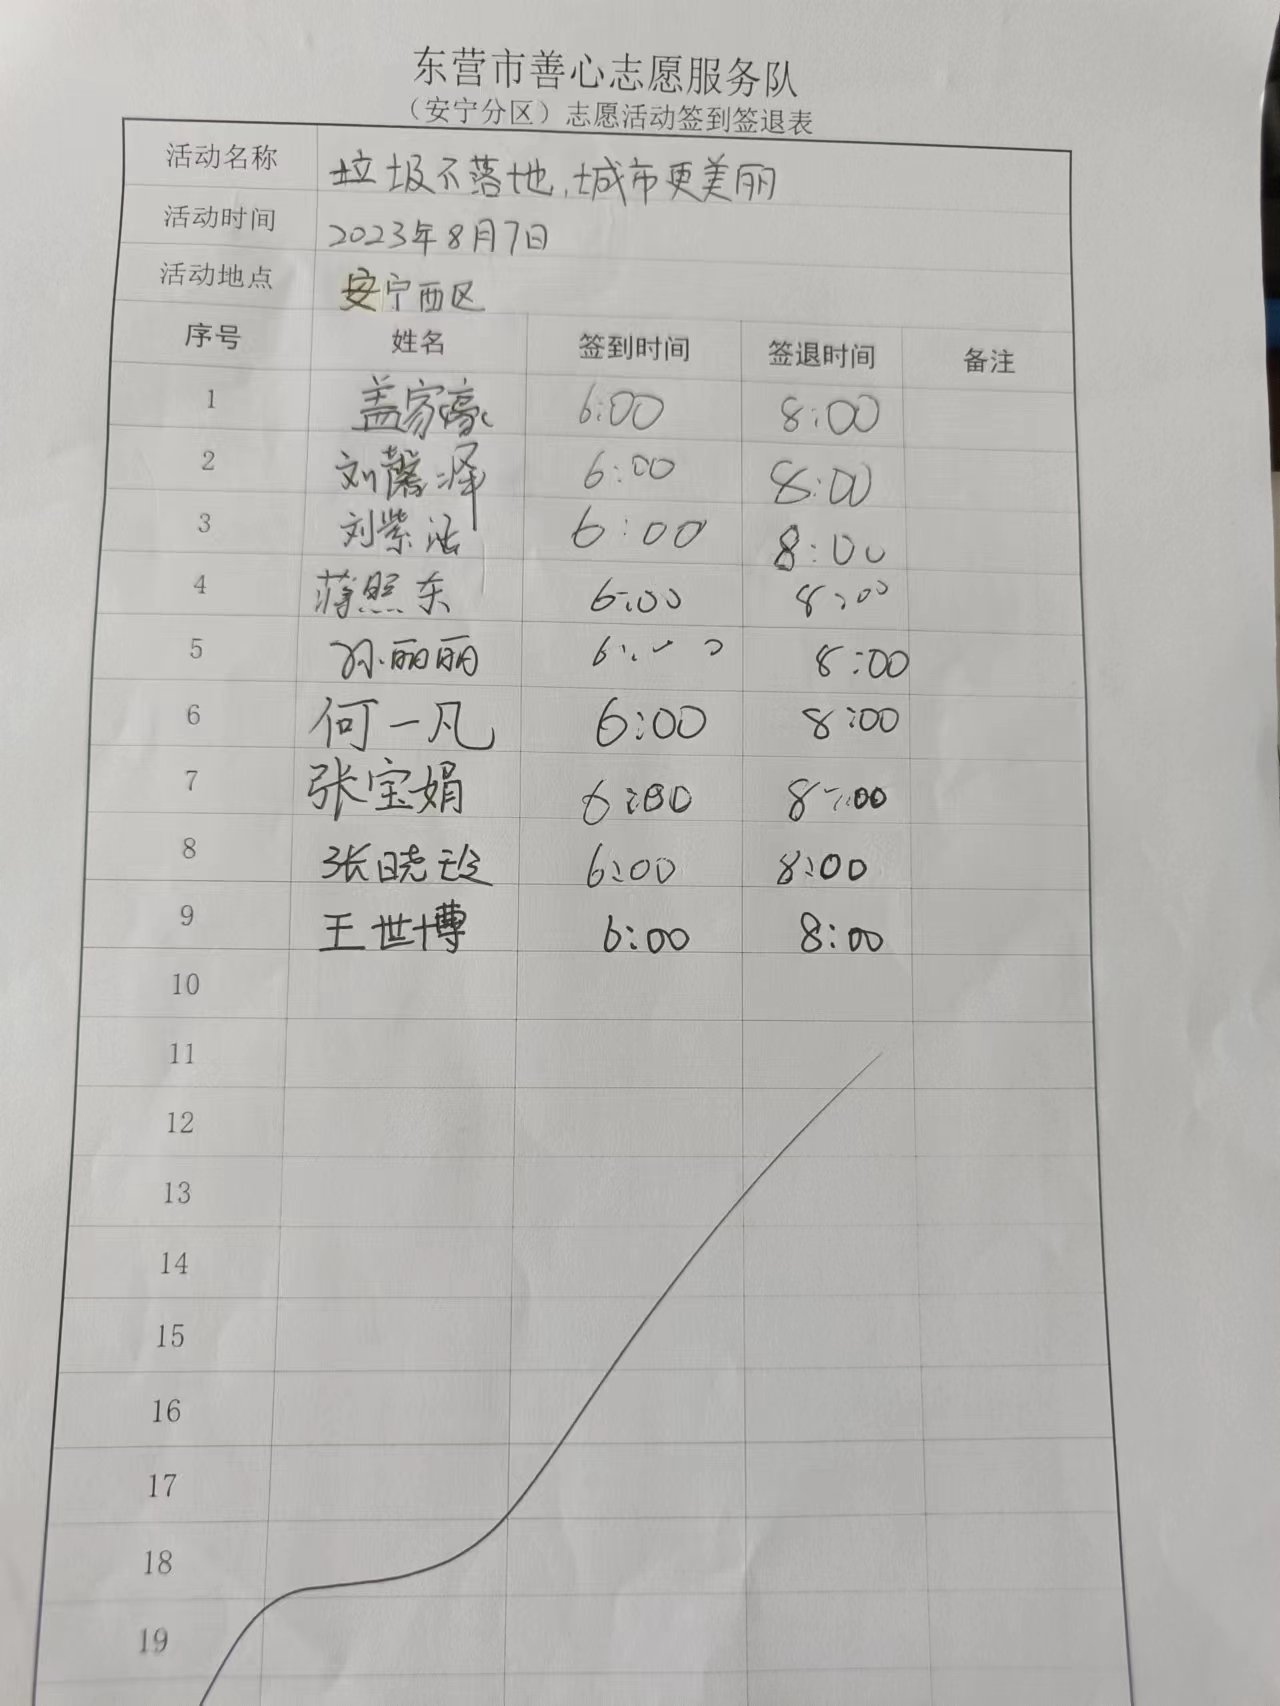 东营市善心志愿服务队
（安宁分区）志愿活动签到签退表
活动名称 垃圾不落地,城市更美丽
活动时间 2023年8月7日
活动地点 安宁西区
序号 姓名 签到时间 签退时间 备注
1 盖家豪 6:00 8:00
2 刘馨泽 6:00 8:00
3 刘紫涵 6:00 8:00
4 薄熙东 6:00 8:00
5 孙丽丽 6:00 8:00
6 何一凡 6:00 8:00
7 张宝娟 6:00 8:00
8 张晓 6:00 8:00
9 王世博 6:00 8:00
10
11
12
13
14
15
16
17
18
19